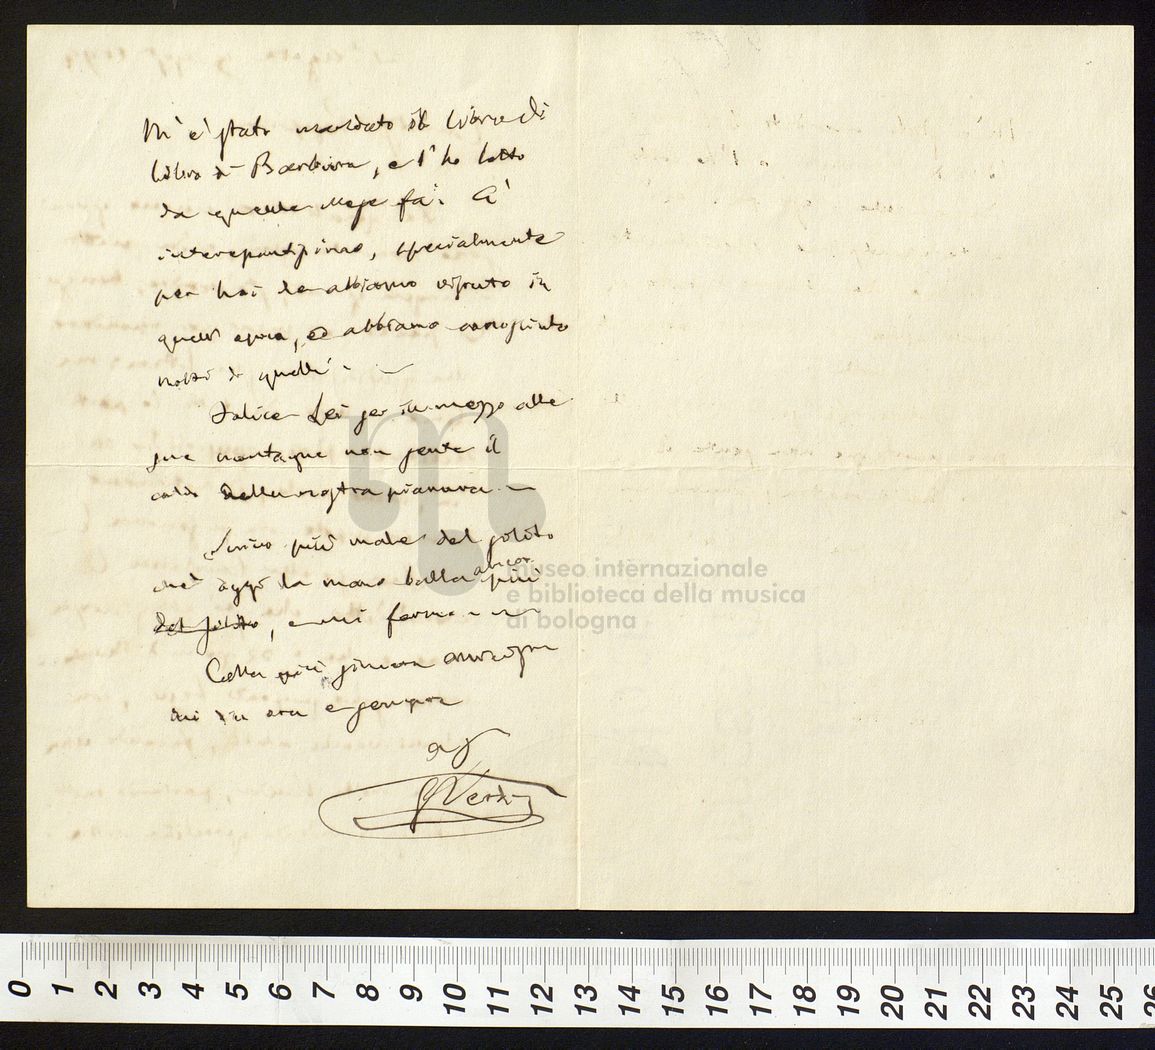 M'è stato mandato il libro di
libro di Barbiera, e l'ho letto
da qualche mese fa. È
interessantissimo, specialmente
per noi che abbiamo vissuto in
quell'epoca, ed abbiamo conosciuto
molti di quelli.
Felice Lei per in mezzo alle
sue montagne non sente il
caldo della nostra pianura. —
Scrivo più male del solito
chè oggi la mano balla ancor più
del solito, e mi fermo —
Colla più sincera
ora e sempre
aff
G Verdi
museo internazionale
e biblioteca della musica
di bologna
0 1 2 3 4 5 6 7 8 9 10 11 12 13 14 15 16 17 18 19 20 21 22 23 24 25 26